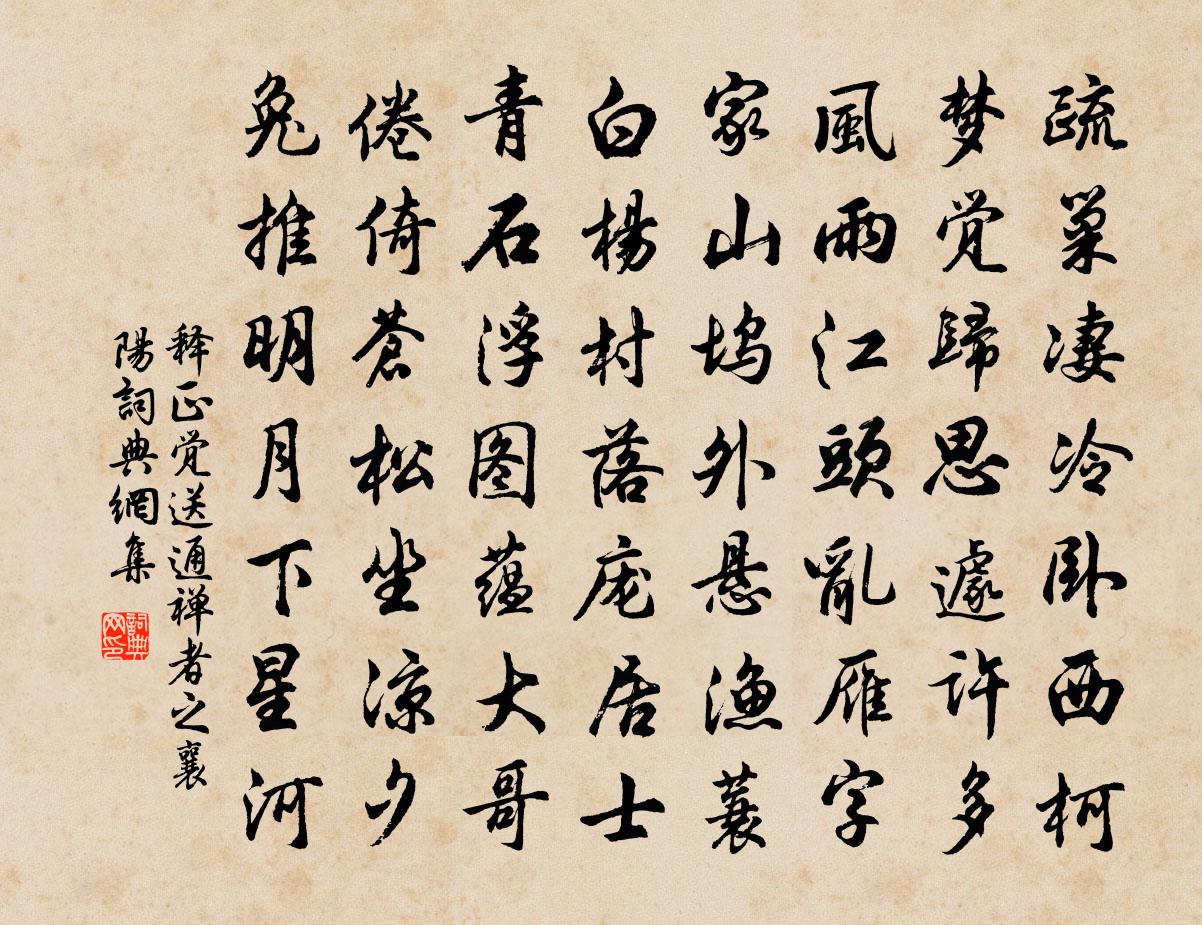 疏巢凄冷卧西柯
梦觉歸思遽许多
風雨江頭亂雁字
家山坞外悬渔蓑
白楊村落庞居士
青石浮图蕴大哥
倦倚苍松坐凉夕
兔推明月下星河
释正觉送通禅者之襄
陽詞典網集
詞典网印